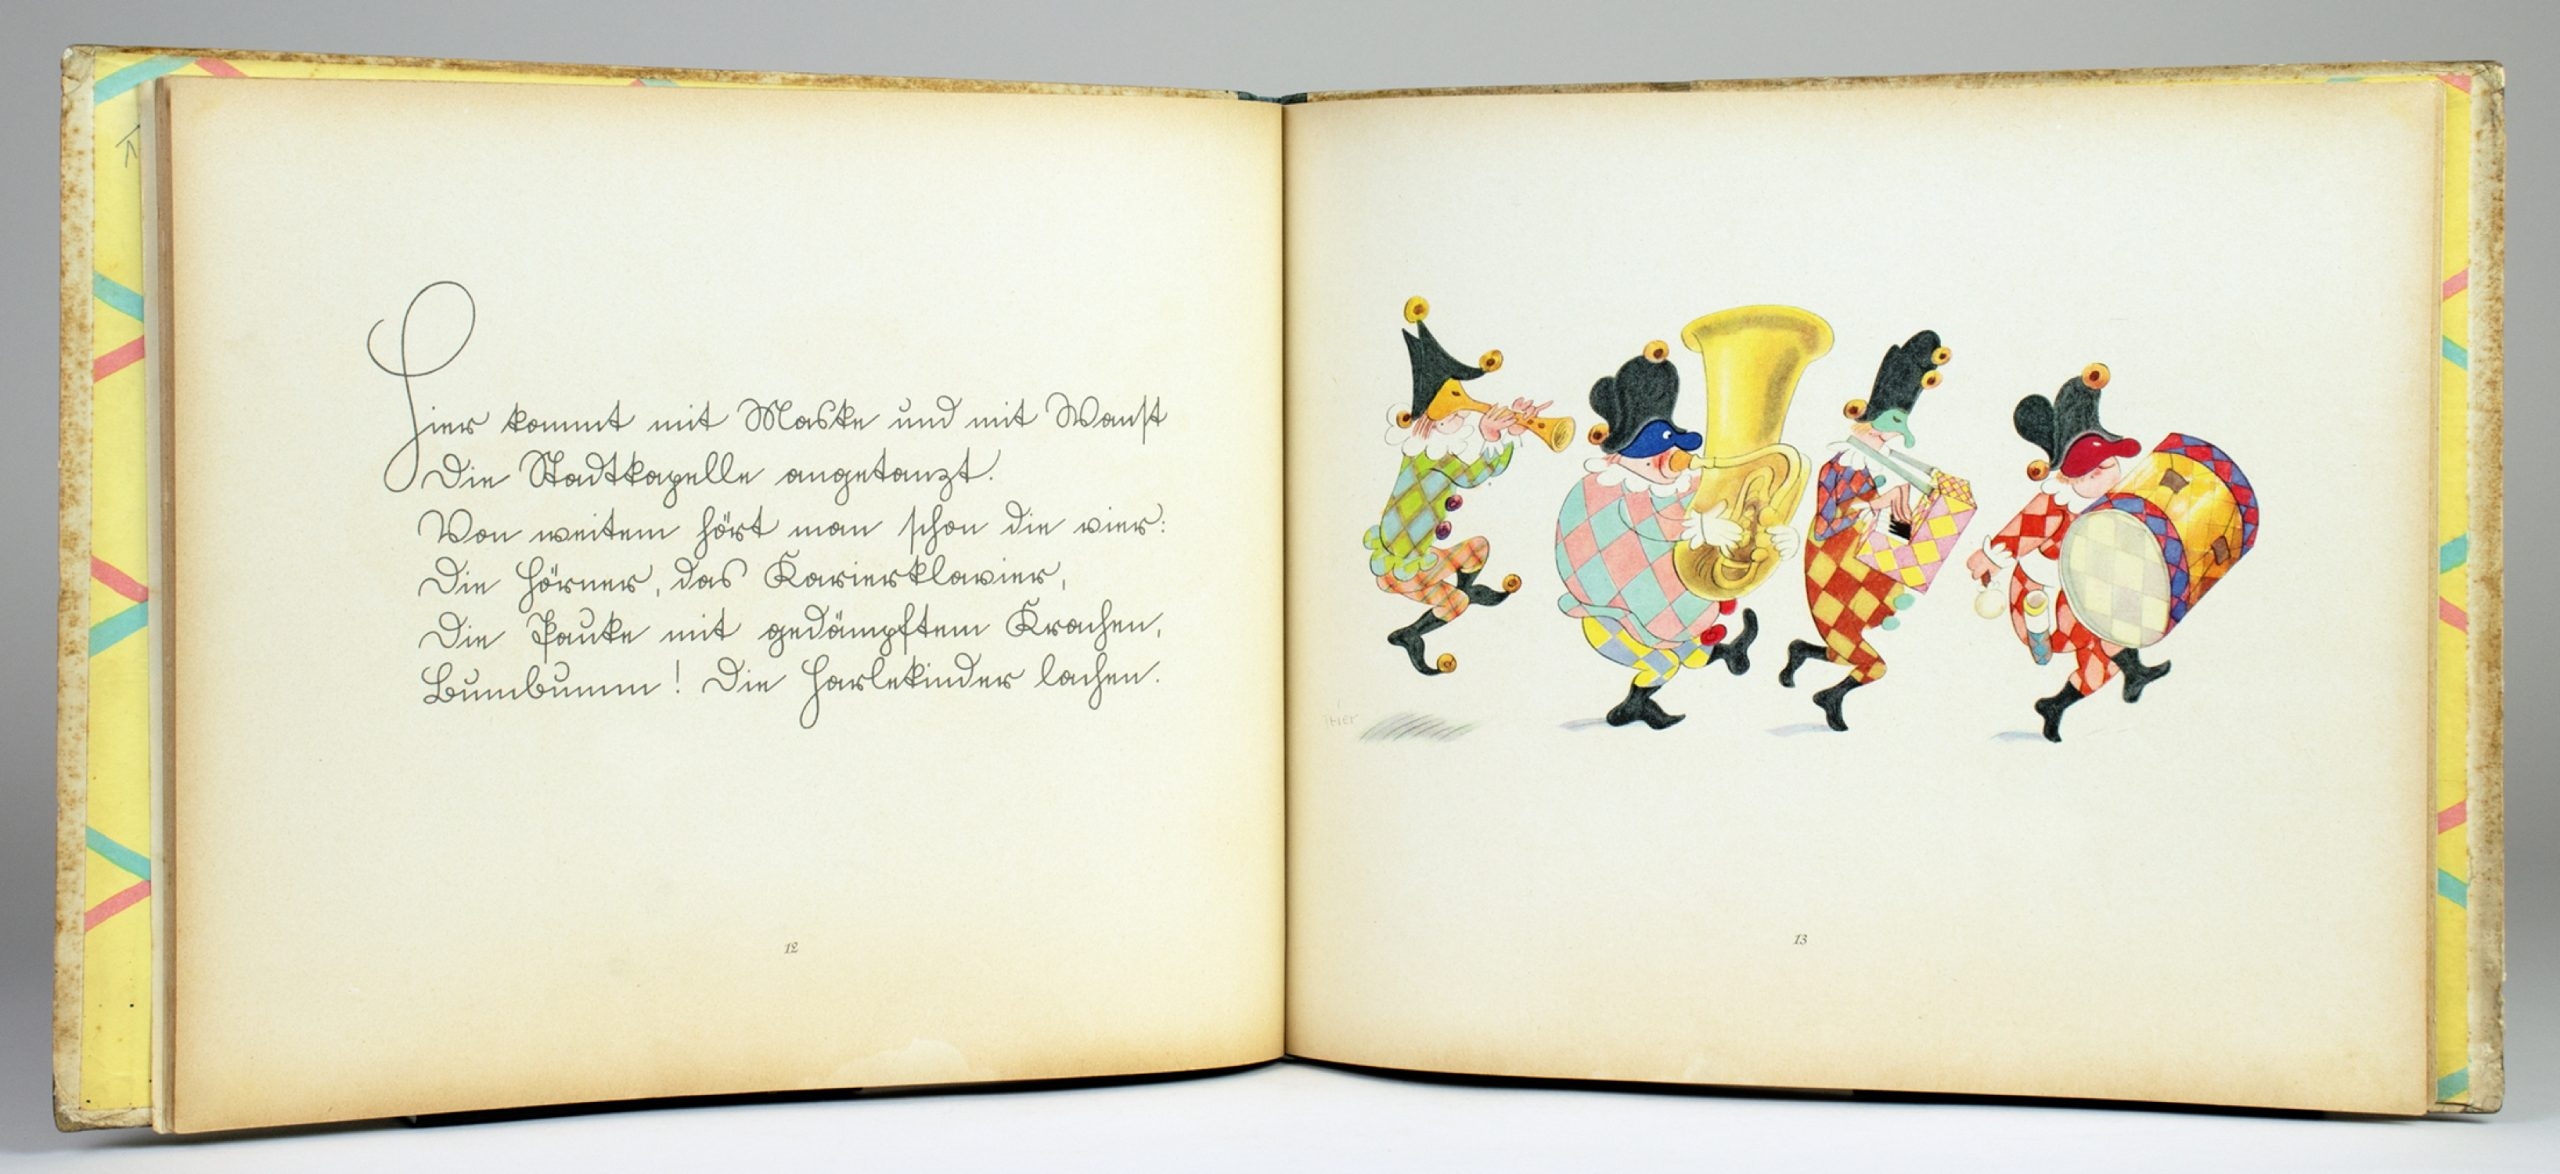 Hier kommt mit Maske und mit Wanst
Die Stadtkapelle angetanzt.
Von weitem hört man schon die vier:
Die Hörner, das Karierklavier,
Die Pauke mit gedämpftem Krachen,
Bumbumm! Die Harlekinder lachen.
12
Trier
13